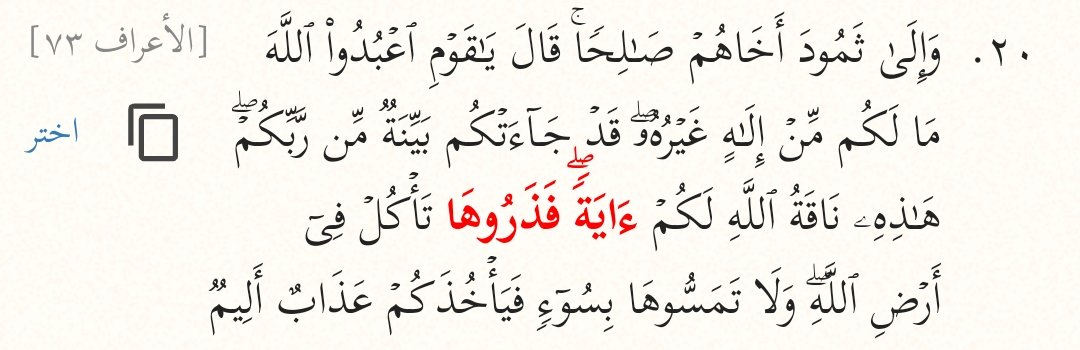 ٢٠. وَإِلَىٰ ثَمُودَ أَخَاهُمۡ صَـٰلِحࣰاۚ قَالَ یَـٰقَوۡمِ ٱعۡبُدُوا۟ ٱللَّهَ [الأعراف ٧٣]
مَا لَكُم مِّنۡ إِلَـٰهٍ غَیۡرُهُۥۖ قَدۡ جَاۤءَتۡكُم بَیِّنَةࣱ مِّن رَّبِّكُمۡۖ اختر
هَـٰذِهِۦ نَاقَةُ ٱللَّهِ لَكُمۡ ءَایَةࣰۖ فَذَرُوهَا تَأۡكُلۡ فِیۤ
أَرۡضِ ٱللَّهِۖ وَلَا تَمَسُّوهَا بِسُوۤءࣲ فَیَأۡخُذَكُمۡ عَذَابٌ أَلِیمࣱ